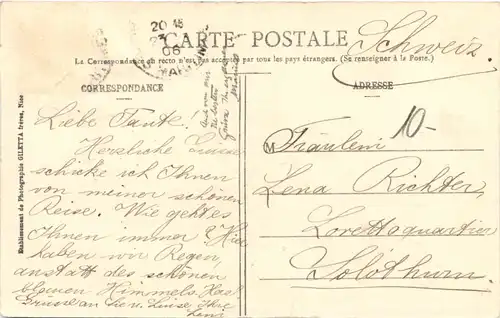 20
06
CARTE POSTALE
La Correspondance au recto n'est pas acceptée par tous les pays étrangers. (Se renseigner à la Poste.)
CORRESPONDANCE
ADRESSE
Etablissement de Photographie GILETTA frères, Nice
Liebe Tante!
Herzliche Grüsse
schicke ich Ihnen
von meiner schönen
Reise. Wie geht es
Ihnen immer? Hier
haben wir Regen,
anstatt des schönen
blauen Himmels.
Grüsse an Luise Ihre
Leni
Auch von mir
die besten
Grüsse
Schweiz.
10-
M Fräulein
Lena Richter
Lorettoquartier
Solothurn.